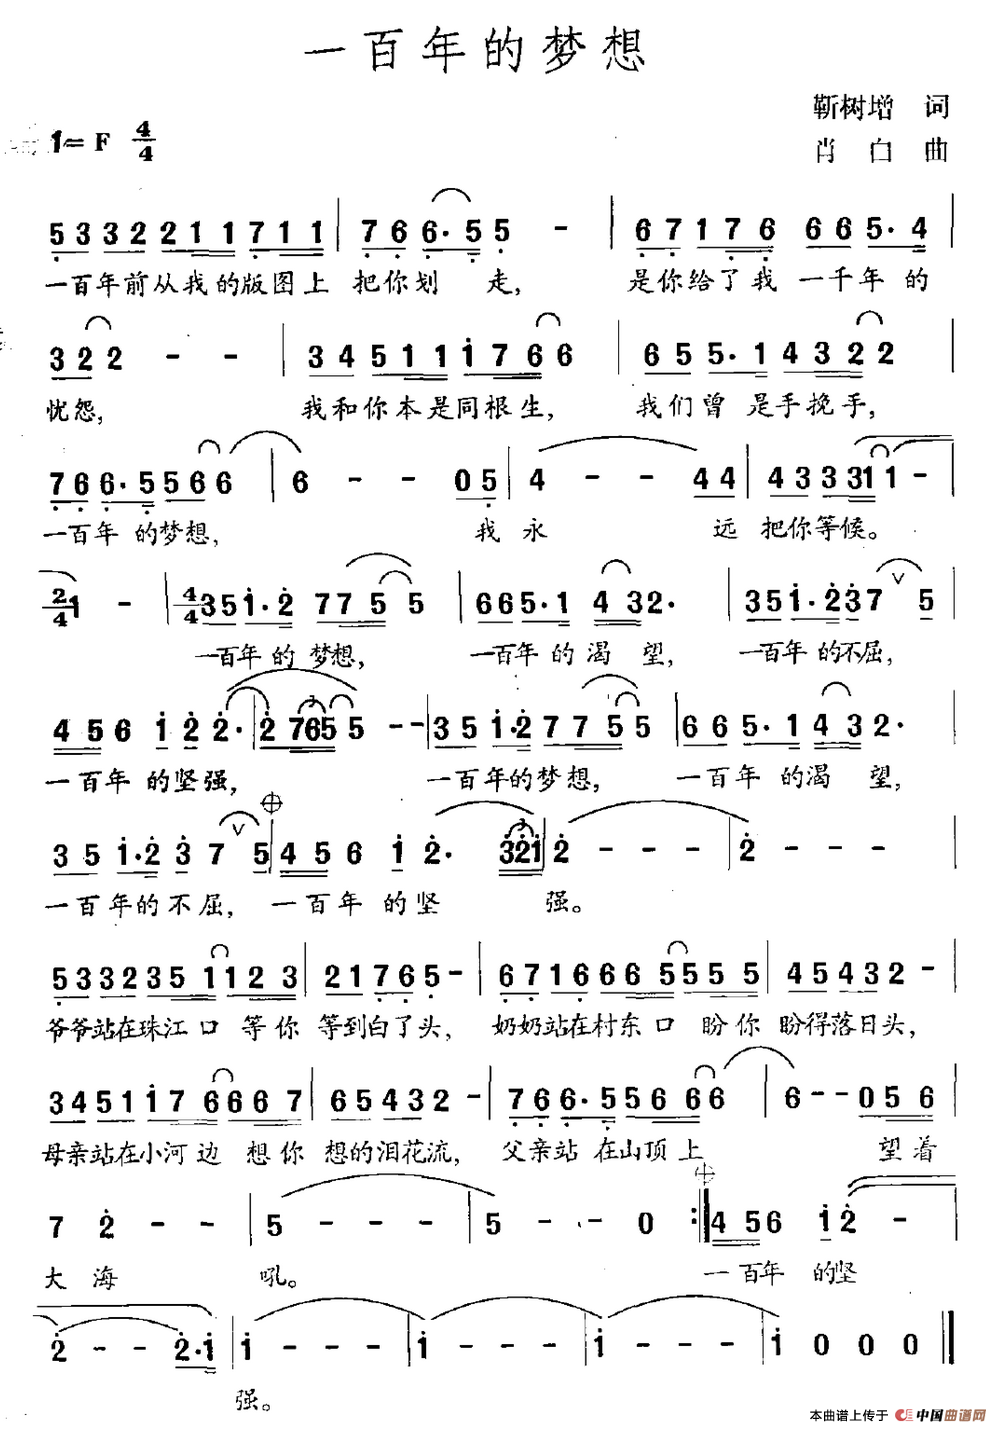 一百年的梦想
靳树增 词
1=F 4/4
肖白曲
5 3 3 3 2 2 1 1 7 1 1 | 7 6 6· 5 5 - | 6 7 1 7 6 6 6 5· 4 |
一百年前从我的版图上 把你划 走, 是你给了我 一千年的
3 2 2 - - | 3 4 5 1 1 1 7 6 6 | 6 5 5· 1 4 3 2 2 |
忧怨, 我和你本是同根生, 我们曾 是手挽手,
7 6 6· 5 5 6 6 6 | 6 - - 0 5 | 4 - - 4 4 | 4 3 3 3 1 1 - |
一百年 的梦想, 我 永 远 把你等候。
2/4 1 - | 4/4 3 5 1· 2 7 7 5 5 | 6 6 5· 1 4 3 2· | 3 5 1· 2 3 7 V 5 |
一百年 的 梦想, 一百年 的 渴 望, 一百年 的不屈,
4 5 6 1 2 2· | 2 7 6 5 5 - - | 3 5 1· 2 7 7 5 5 | 6 6 5· 1 4 3 2· |
一百年 的坚强, 一百年的梦想, 一百年 的渴 望,
3 5 1· 2 3 7 V 5 | 4 5 6 1 2· 3 2 1 | 2 - - - | 2 - - - |
一百年的不屈, 一百年 的坚 强。
5 3 3 2 3 5 1 1 2 3 | 2 1 7 6 5 - | 6 7 1 6 6 6 5 5 5 5 | 4 5 4 3 2 - |
爷爷站在珠江口 等你 等到白了头, 奶奶站在村东口 盼你 盼得落日头,
3 4 5 1 1 7 6 6 6 7 | 6 5 4 3 2 - | 7 6 6· 5 5 6 6 6 | 6 - - 0 5 6 |
母亲站在小河边 想你 想的泪花流, 父亲站 在山顶上 望着
7 2 - - | 5 - - - | 5 - - 0 :| 4 5 6 1 2 - |
大海 吼。 一百年 的坚
2 - - 2· 1 | 1 - - - | 1 - - - | 1 - - - | 1 0 0 0 ‖
强。
本曲谱上传于 中国曲谱网